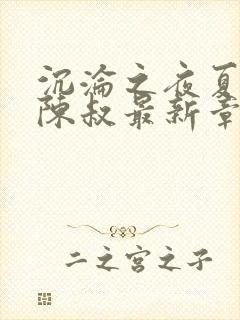 沉淪之夜夏
陳叔最新章
二之宮之子